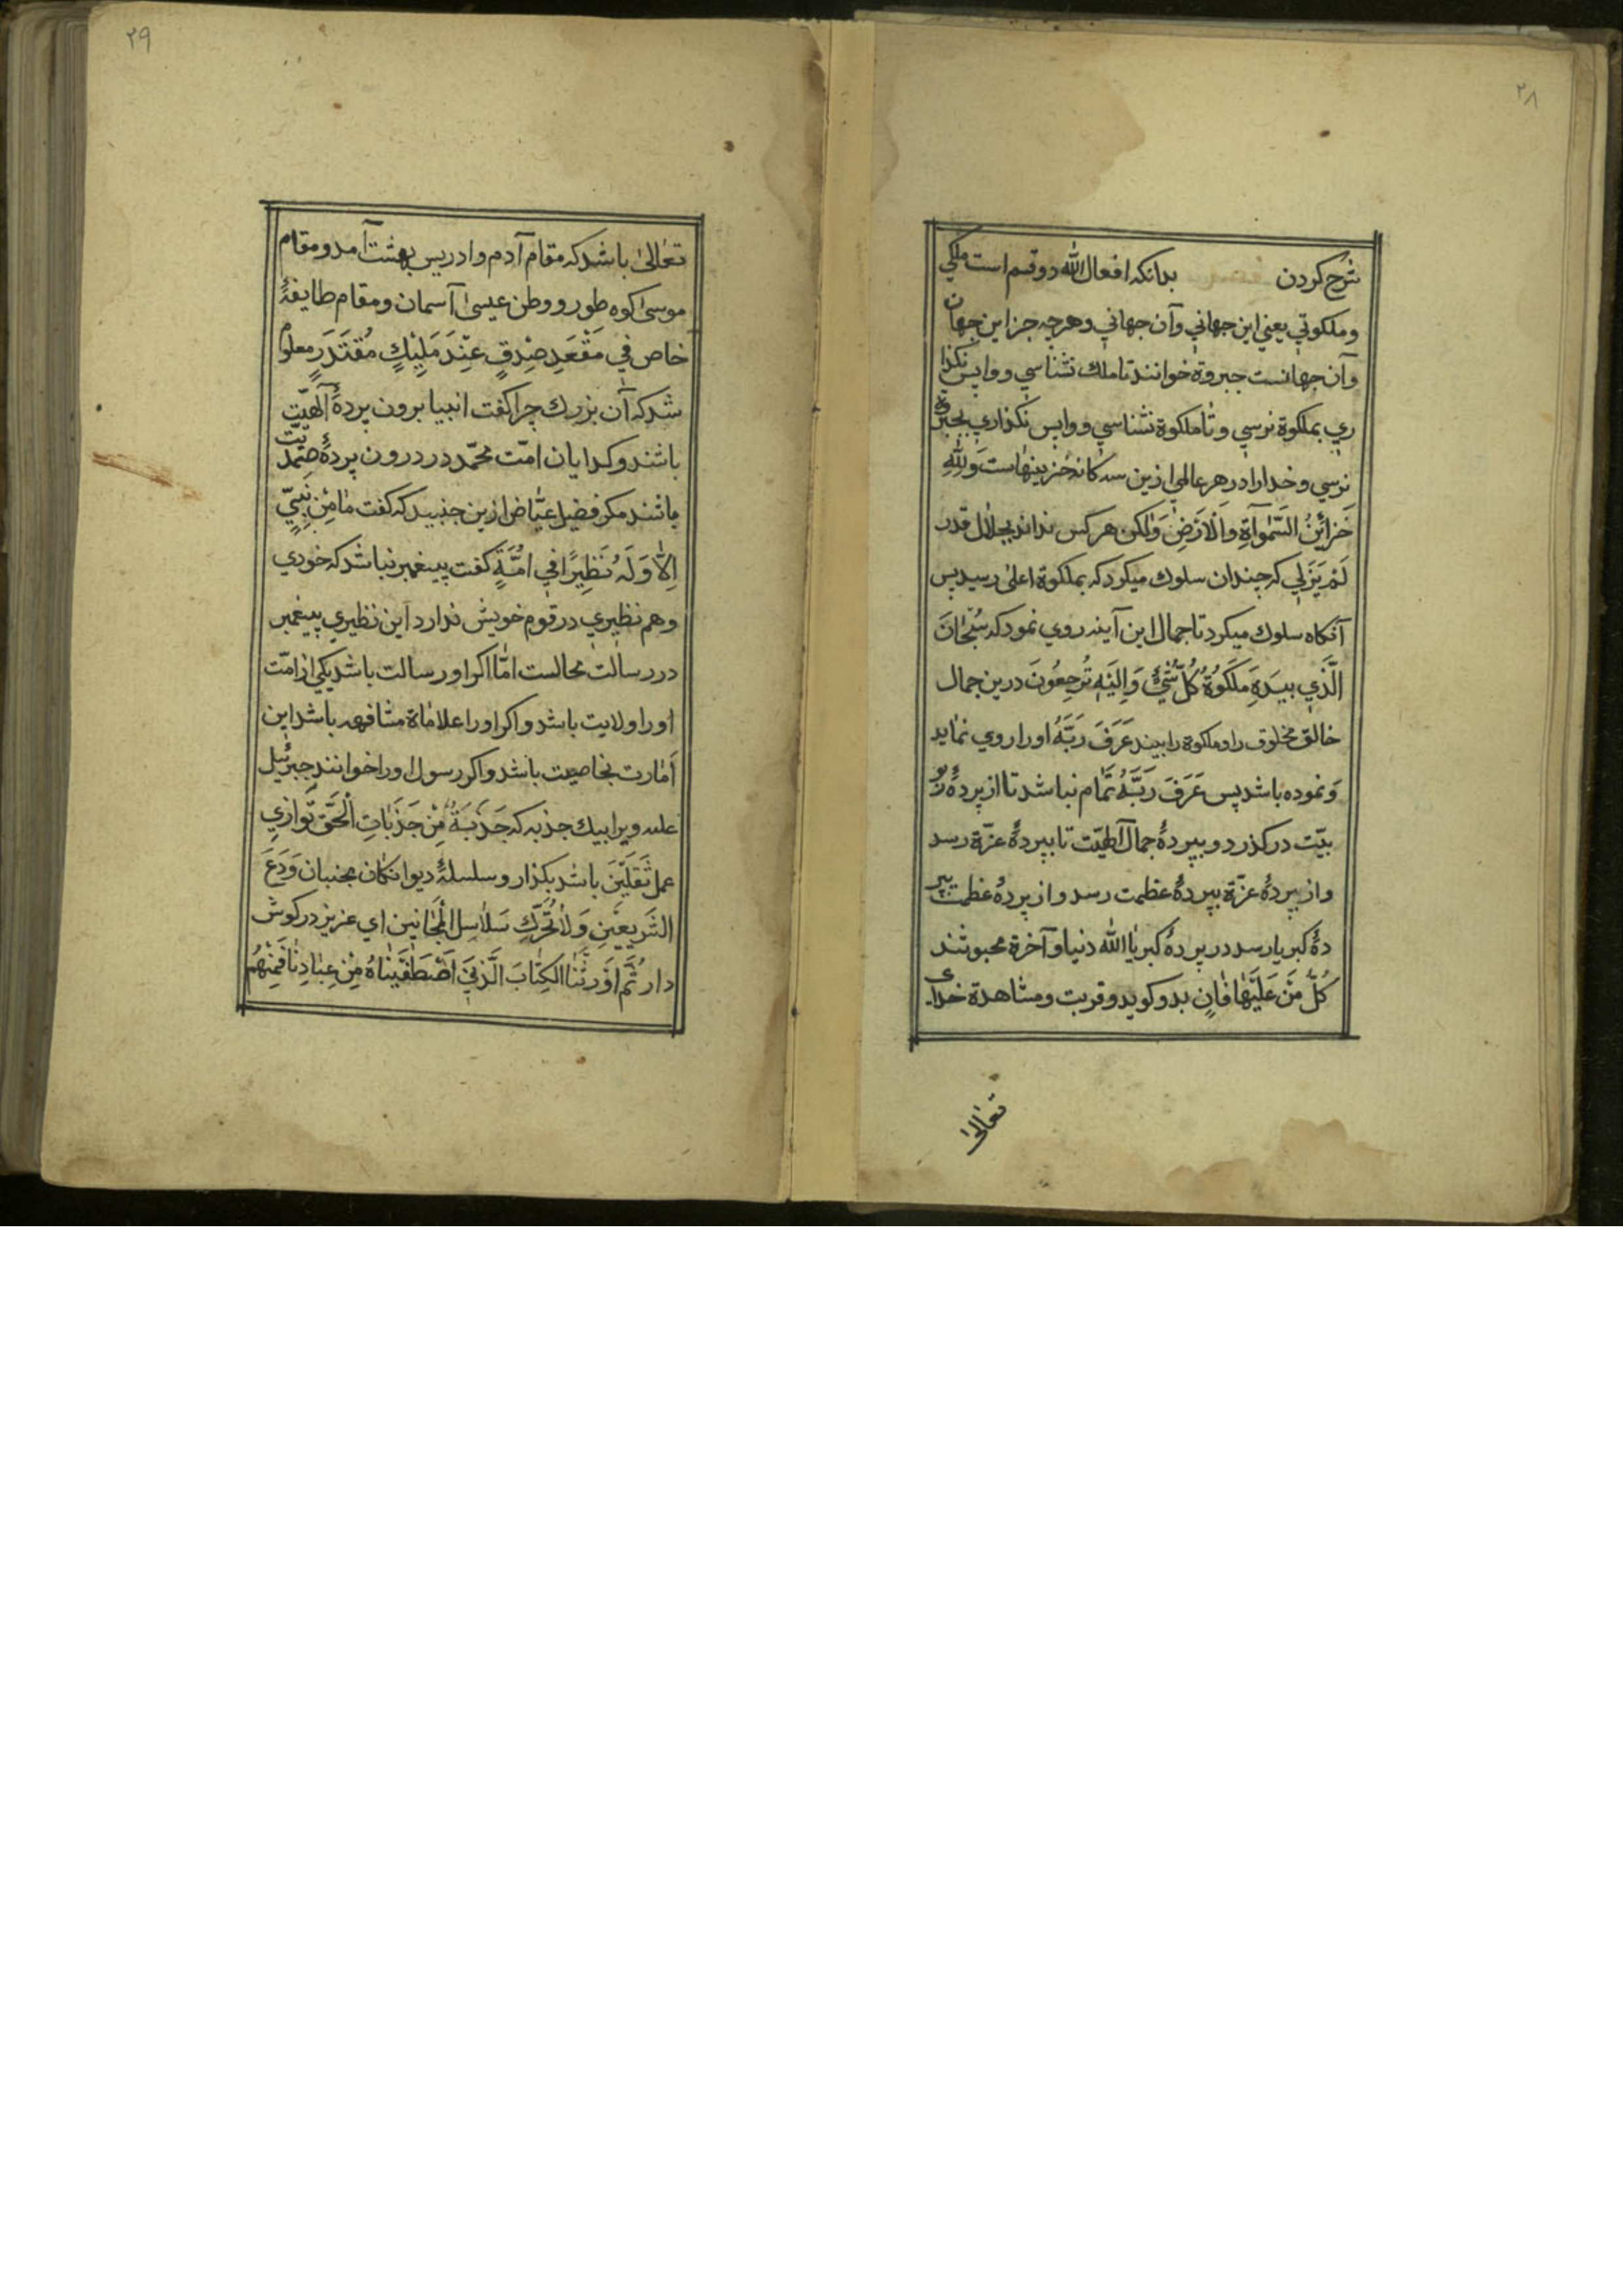 ۲۸
شرح کردن بدانکه افعال الله دو قسم است ملکي
و ملکوتي يعني اين جهاني وآن جهاني وهرچه جز اين جهان
وآن جهانست جبروة خوانند تا ملك نشناسي و واپس نکذا
ري بملکوة نرسي و تا ملکوة نشناسي و واپس نکذاري بجبروة
نرسي و خدا را در هر عالمي ازين سه کانه خزينهاست وَلِلّٰهِ
خَزائِنُ السَّمٰوٰاةِ وَالْاَرْضِ وَلکن هر کس نداند بجلال قدر
لَمْ يَزَلِي که چندان سلوك ميکرد که بملکوة اعلى رسيد پس
آنکاه سلوك ميکرد تا جمال اين آينه روي نمود که سُبْحٰانَ
الَّذي بِيَدِهِ مَلَكُوةُ كُلِّ شَيْءٍ وَاِلَيْهِ تُرْجَعُونَ درين جمال
خالق مخلوق را و ملکوة را بيند عَرَفَ رَبَّهُ او را روي نمايد
و نموده باشد پس عَرَفَ رَبَّهُ تمام نباشد تا از پردۀ ربو
بيّت درکذرد و بپردۀ جمال آلهيّت تا بپردۀ عزّة رسد
و از بپردۀ عزّة بپردۀ عظمت رسد و از پردۀ عظمت بپر
دۀ کبريا رسد در پردۀ کبريا الله دنيا و آخرة محبو شند
كُلُّ مَنْ عَلَيْهٰا فٰانٍ بدو کويد و قربت و مشاهدة خداي
تعالى
۲۹
تعالى باشد که مقام آدم و ادريس بهشت آمد و مقام
موسى کوه طور و وطن عيسى آسمان و مقام طايفۀ
خاص في مَقْعَدِ صِدْقٍ عِنْدَ مَلِيْكٍ مُقْتَدَرٍ معلوم
شد که آن بزرك چرا کفت انبيا برون پردۀ آلهيّت
باشند و کدايان امّت محمّد در درون پردۀ صمديّت
باشند مکر فضيل عيّاض ازين جنبيد که کفت مٰا مِنْ نَبِيٍّ
اِلّٰا وَلَهُ نَظِيرًا في اُمَّةٍ کفت پيغمبر نباشد که خودي
و هم نظيري در قوم خويش ندارد اين نظيري پيغمبر
در رسالت محالست امّا اکر او رسالت باشد يکي از امّت
او را ولايت باشد و اکر او را علامات مشافهه باشد اين
اَمارت بخاصيت باشد و اکر رسول او را خوانند جبرئيل
عله ويرا بيك جذبه که جَذْبَةٌ مِنْ جَذَبٰاتِ الْحَقِّ تُوٰازِي
عمل ثَقَلَيْنَ باشد بکذار و سلسلۀ ديوانکان مجنبان وَدَعَ
الشَّرِيعَيْنِ وَلٰا تُحَرِّكِ سَلٰاسِلَ الْمَجٰانِينَ اي عزيز در کوش
دار ثُمَّ اَوْرَثْنَا الكِتٰابَ الَّذينَ اَصْطَفَيْنٰاهُ مِنْ عِبٰادِنٰا فَمِنْهُمْ